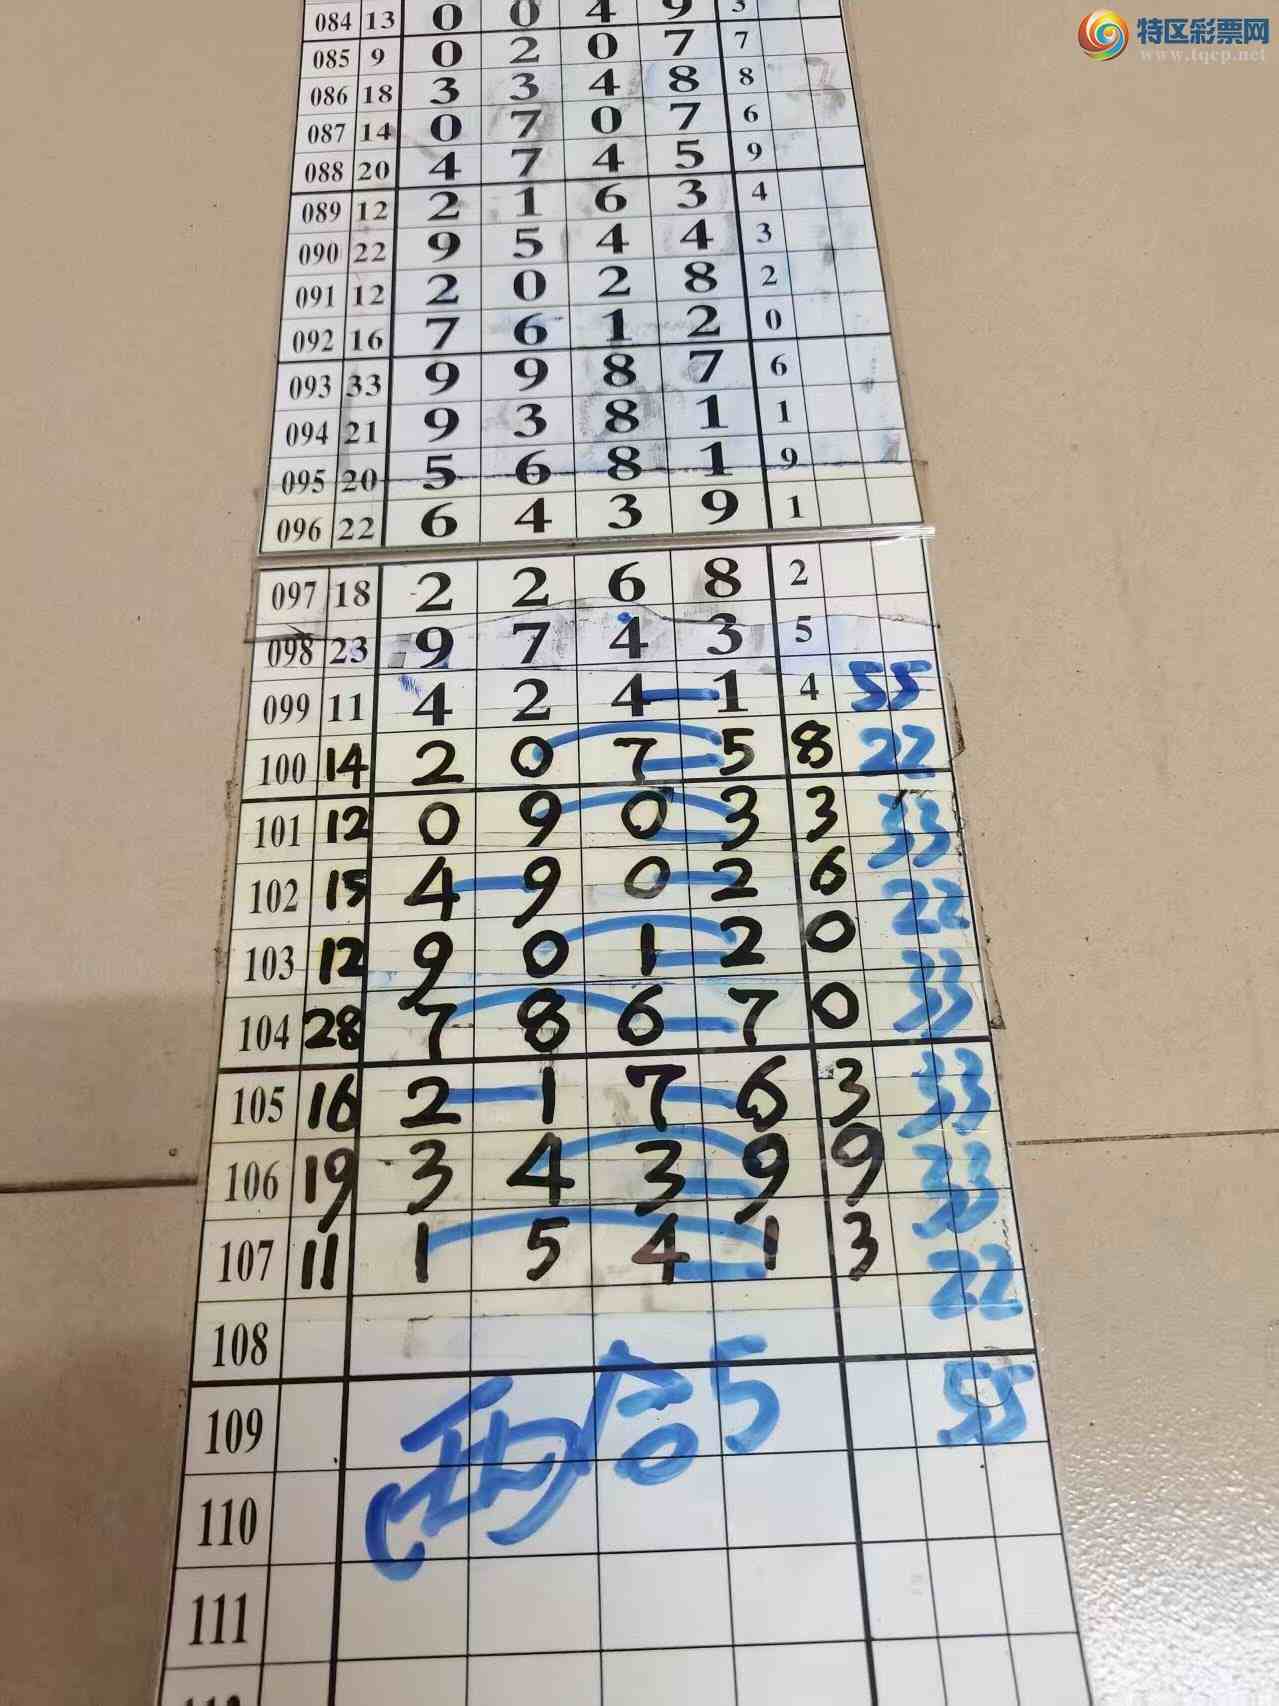 特区彩票网
www.tqcp.net
084 13 0 0 4 9 3
085 9 0 2 0 7 7
086 18 3 3 4 8 8
087 14 0 7 0 7 6
088 20 4 7 4 5 9
089 12 2 1 6 3 4
090 22 9 5 4 4 3
091 12 2 0 2 8 2
092 16 7 6 1 2 0
093 33 9 9 8 7 6
094 21 9 3 8 1 1
095 20 5 6 8 1 9
096 22 6 4 3 9 1
097 18 2 2 6 8 2
098 23 9 7 4 3 5
099 11 4 2 4 1 4 55
100 14 2 0 7 5 8 22
101 12 0 9 0 3 3 33
102 15 4 9 0 2 6 22
103 12 9 0 1 2 0 33
104 28 7 8 6 7 0
105 16 2 1 7 6 3 33
106 19 3 4 3 9 9 33
107 11 1 5 4 1 3 22
108
109 55
合5
110
111